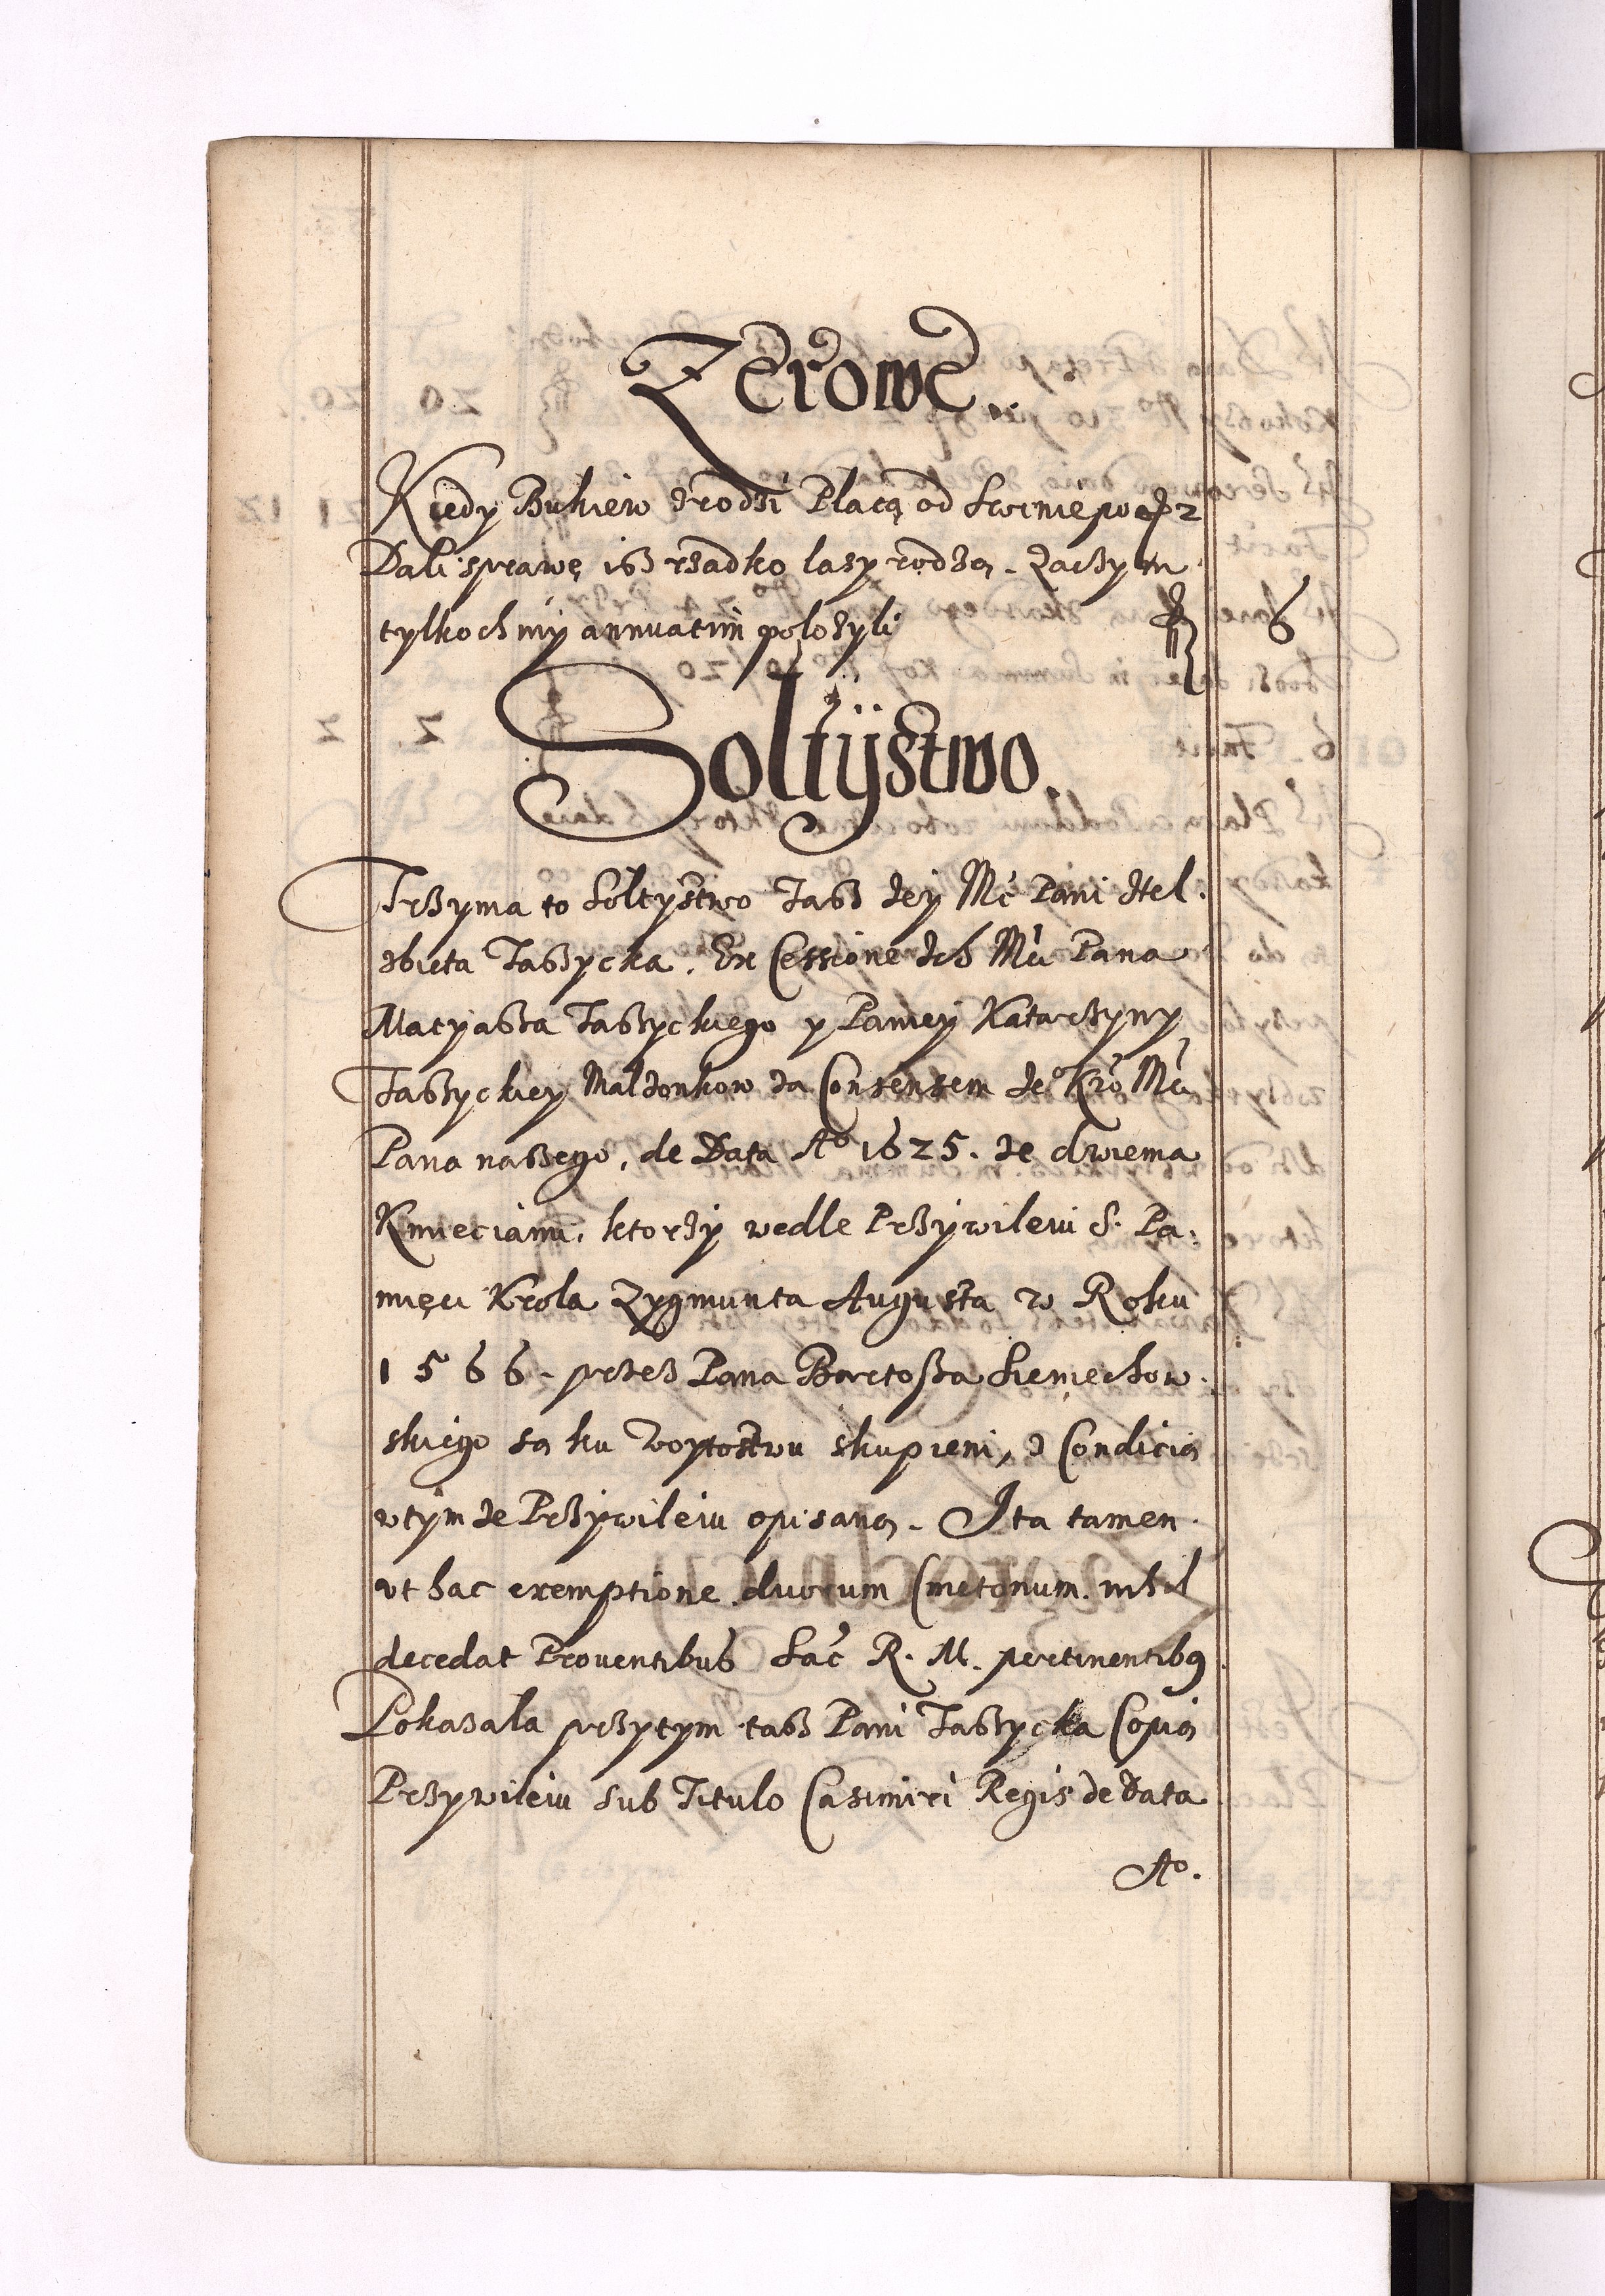 Zerowe.
Kiedy Bukiew zrodzi Placą od swinie po gr 2
Dali sprawę isz rzadko lasy rodzą. Zaczym
tylkochmy annuatim polozyli fl 6
Soltÿstwo.
Trzyma to Soltystwo Tasz Jey Mć Pani Hel¬
zbieta Taszycka. Ex Cessione Jeo Mći Pana
Matyasza Taszyckiego y Paniey Katarzyny
Taszyckiey Malzonkow za Consensem Jeo Kro Mći
Pana naszego, de Data Ao 1625. ze dwiema
Kmieciami, ktorzy wedle Przywileiu S. Pa¬
mięci Krola Zygmunta Augusta w Roku
1566. przez Pana Bartosza Siemiechow¬
skiego są ku woytostwu skupieni, z Condicią
wtym ze Przywileiu opisaną. Ita tamen
vt hac exemptione duorum Cmetonum nihil
decedat Prouentibus Sac R. M. pertinentibus
Pokazala przytym tasz Pani Taszycka Copią
Przywileiu sub Titulo Casimiri Regis de Data
Ao.